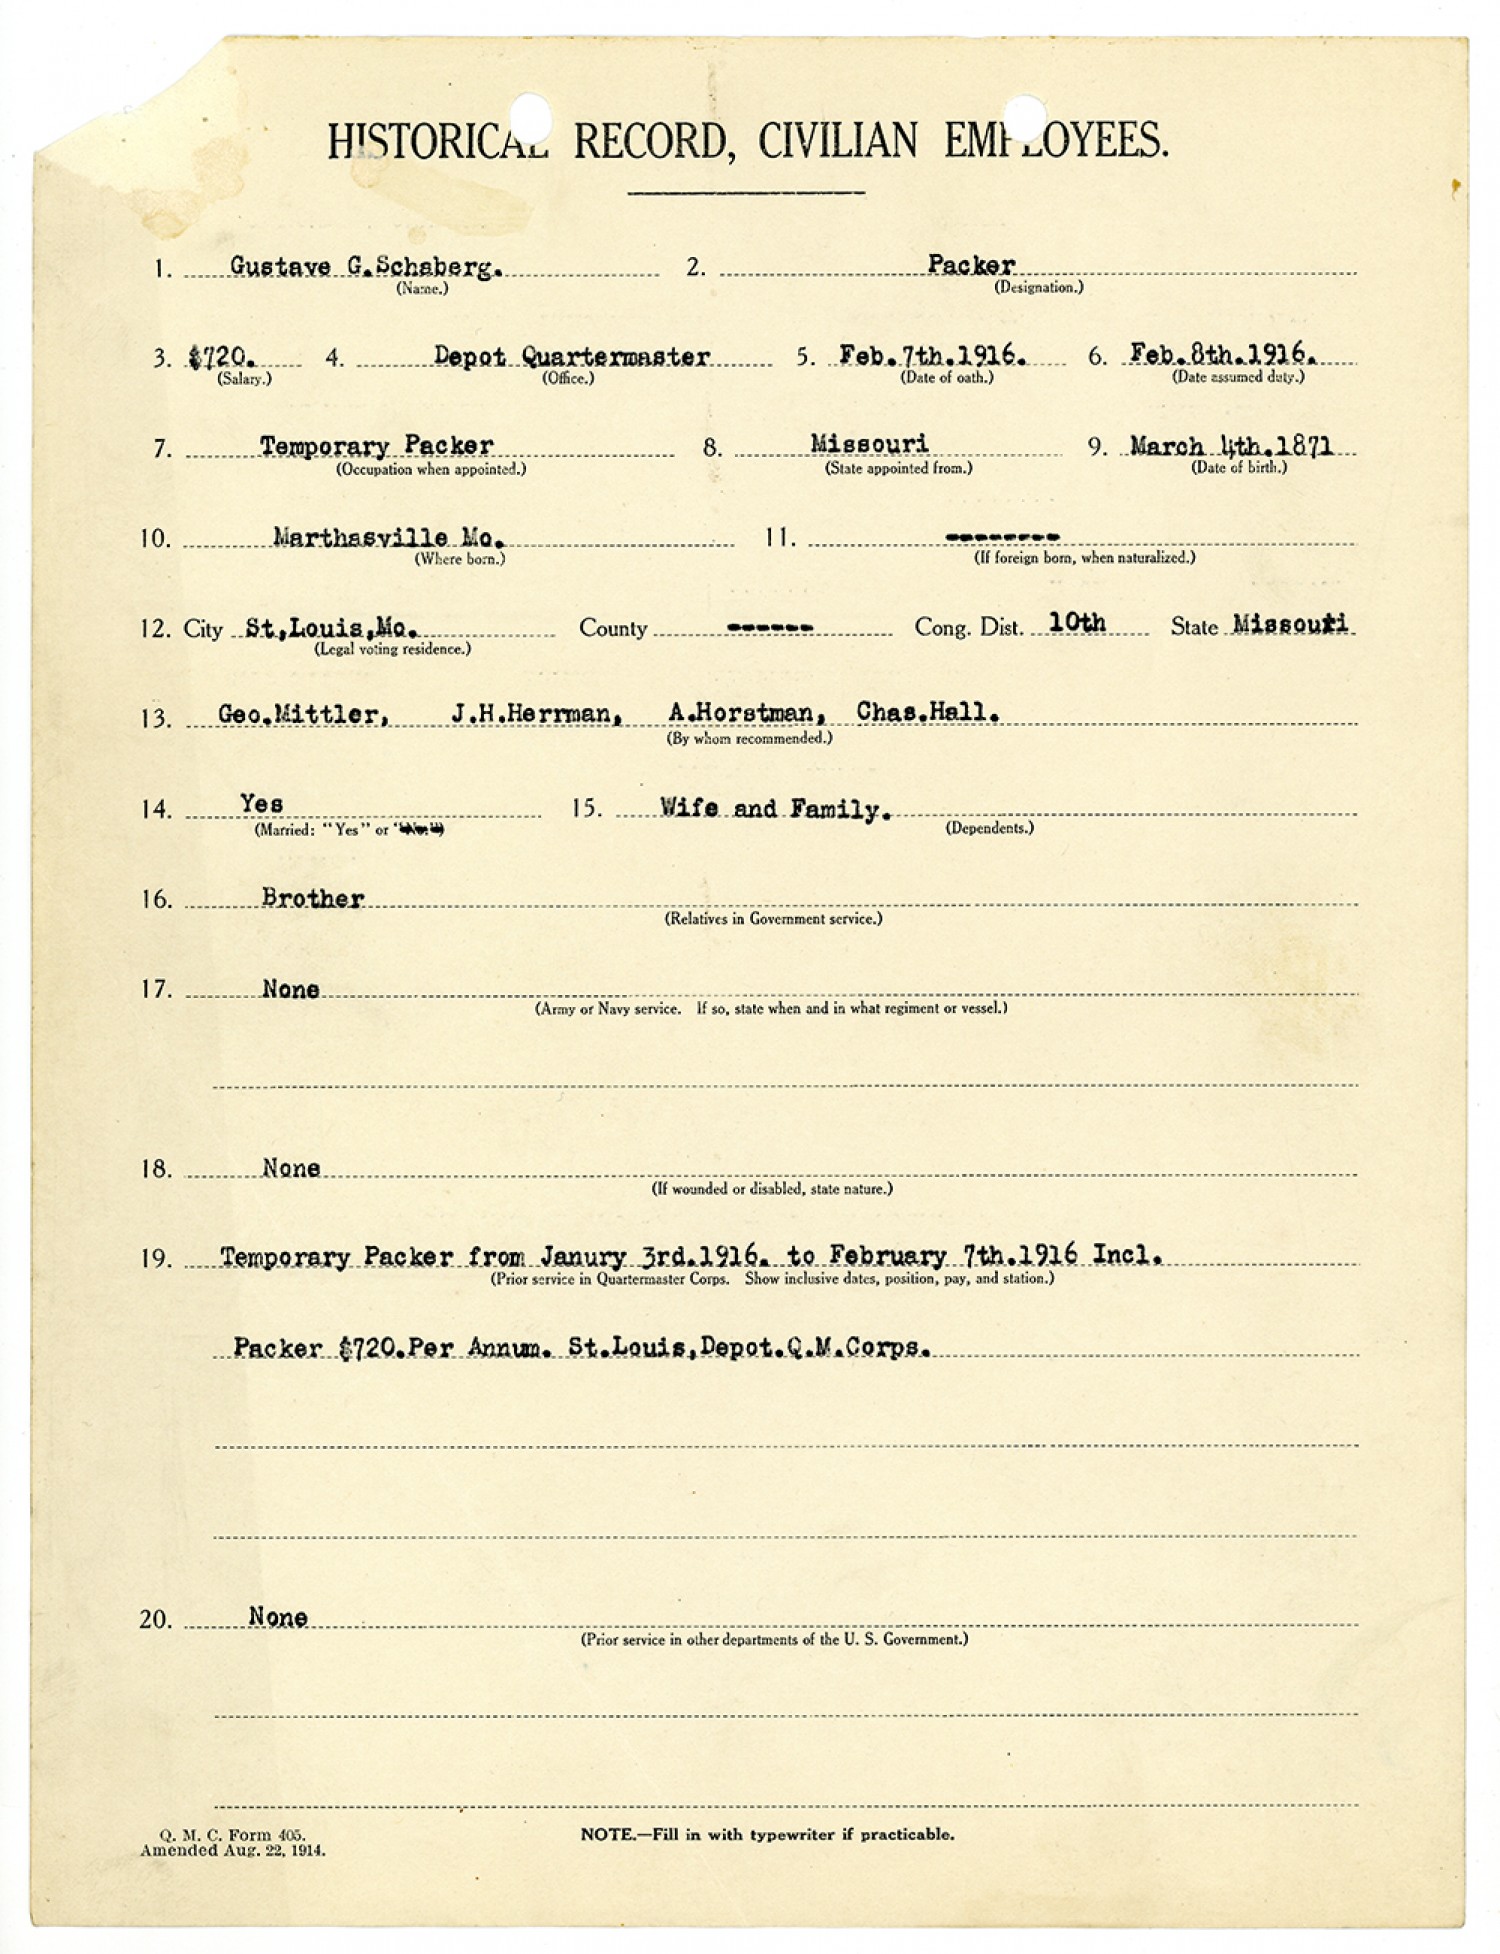 HISTORICAL RECORD, CIVILIAN EMPLOYEES.
1. Gustave G.Schaberg. 2. Packer
(Name.) (Designation.)
3. $720. 4. Depot Quartermaster 5. Feb.7th.1916. 6. Feb.8th.1916.
(Salary.) (Office.) (Date of oath.) (Date assumed duty.)
7. Temporary Packer 8. Missouri 9. March 4th.1871
(Occupation when appointed.) (State appointed from.) (Date of birth.)
10. Marthasville Mo. 11. --------
(Where born.) (If foreign born, when naturalized.)
12. City St,Louis,Mo. County ------ Cong. Dist. 10th State Missouri
(Legal voting residence.)
13. Geo.Mittler, J.H.Herrman, A.Horstman, Chas.Hall.
(By whom recommended.)
14. Yes 15. Wife and Family.
(Married: "Yes" or "No.") (Dependents.)
16. Brother
(Relatives in Government service.)
17. None
(Army or Navy service. If so, state when and in what regiment or vessel.)
18. None
(If wounded or disabled, state nature.)
19. Temporary Packer from Janury 3rd.1916. to February 7th.1916 Incl.
(Prior service in Quartermaster Corps. Show inclusive dates, position, pay, and station.)
Packer $720.Per Annum. St.Louis,Depot.Q.M.Corps.
20. None
(Prior service in other departments of the U. S. Government.)
Q. M. C. Form 405. NOTE.—Fill in with typewriter if practicable.
Amended Aug. 22, 1914.